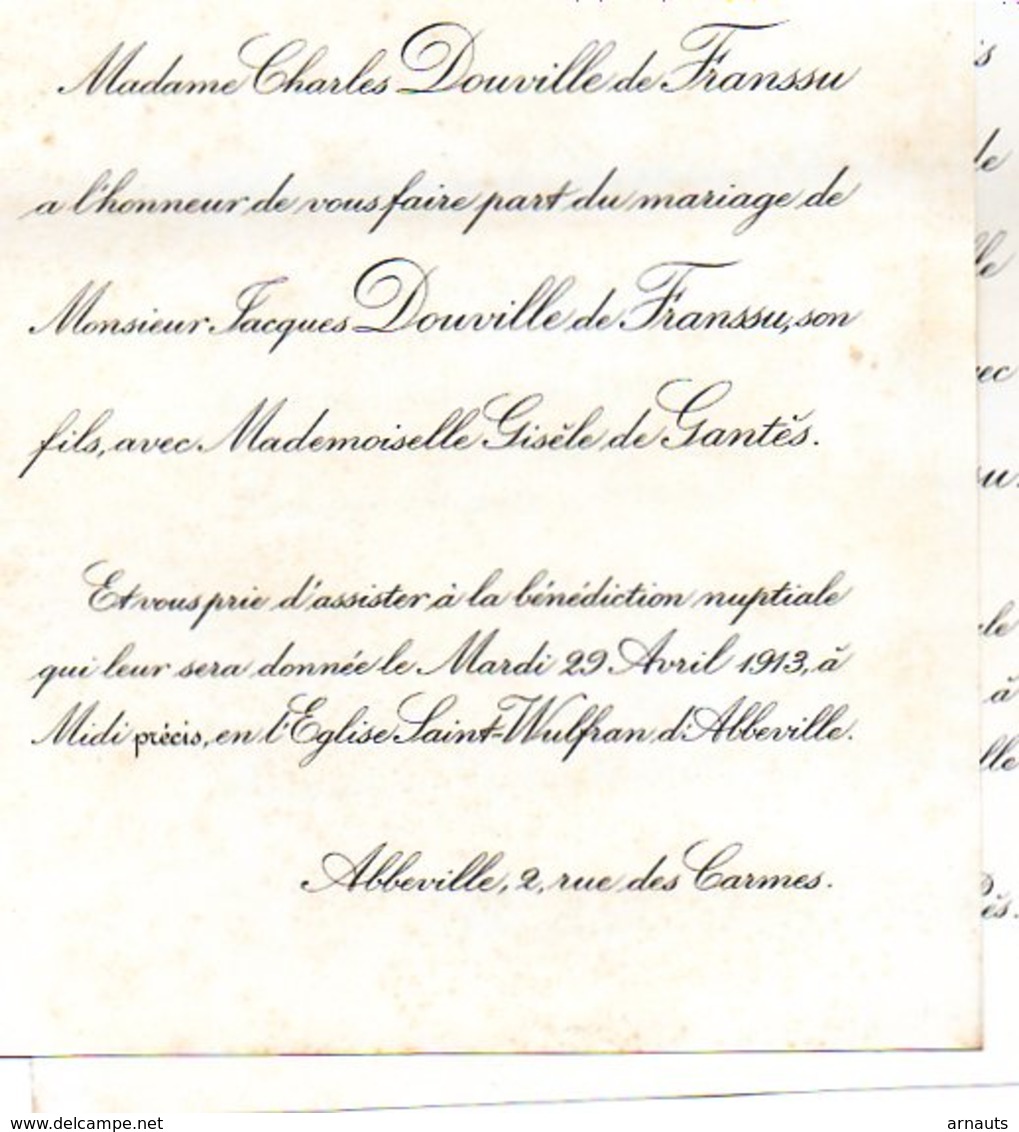 Madame Charles Douville de Franssu
a l'honneur de vous faire part du mariage de
Monsieur Jacques Douville de Franssu, son
fils, avec Mademoiselle Gisèle de Gantès.
Et vous prie d'assister à la bénédiction nuptiale
qui leur sera donnée le Mardi 29 Avril 1913, à
Midi précis, en l'Eglise Saint-Wulfran d'Abbeville.
Abbeville, 2, rue des Carmes.
is
de
lle
vec
su.
cle
à
lle
ès.
www.delcampe.net
arnauts